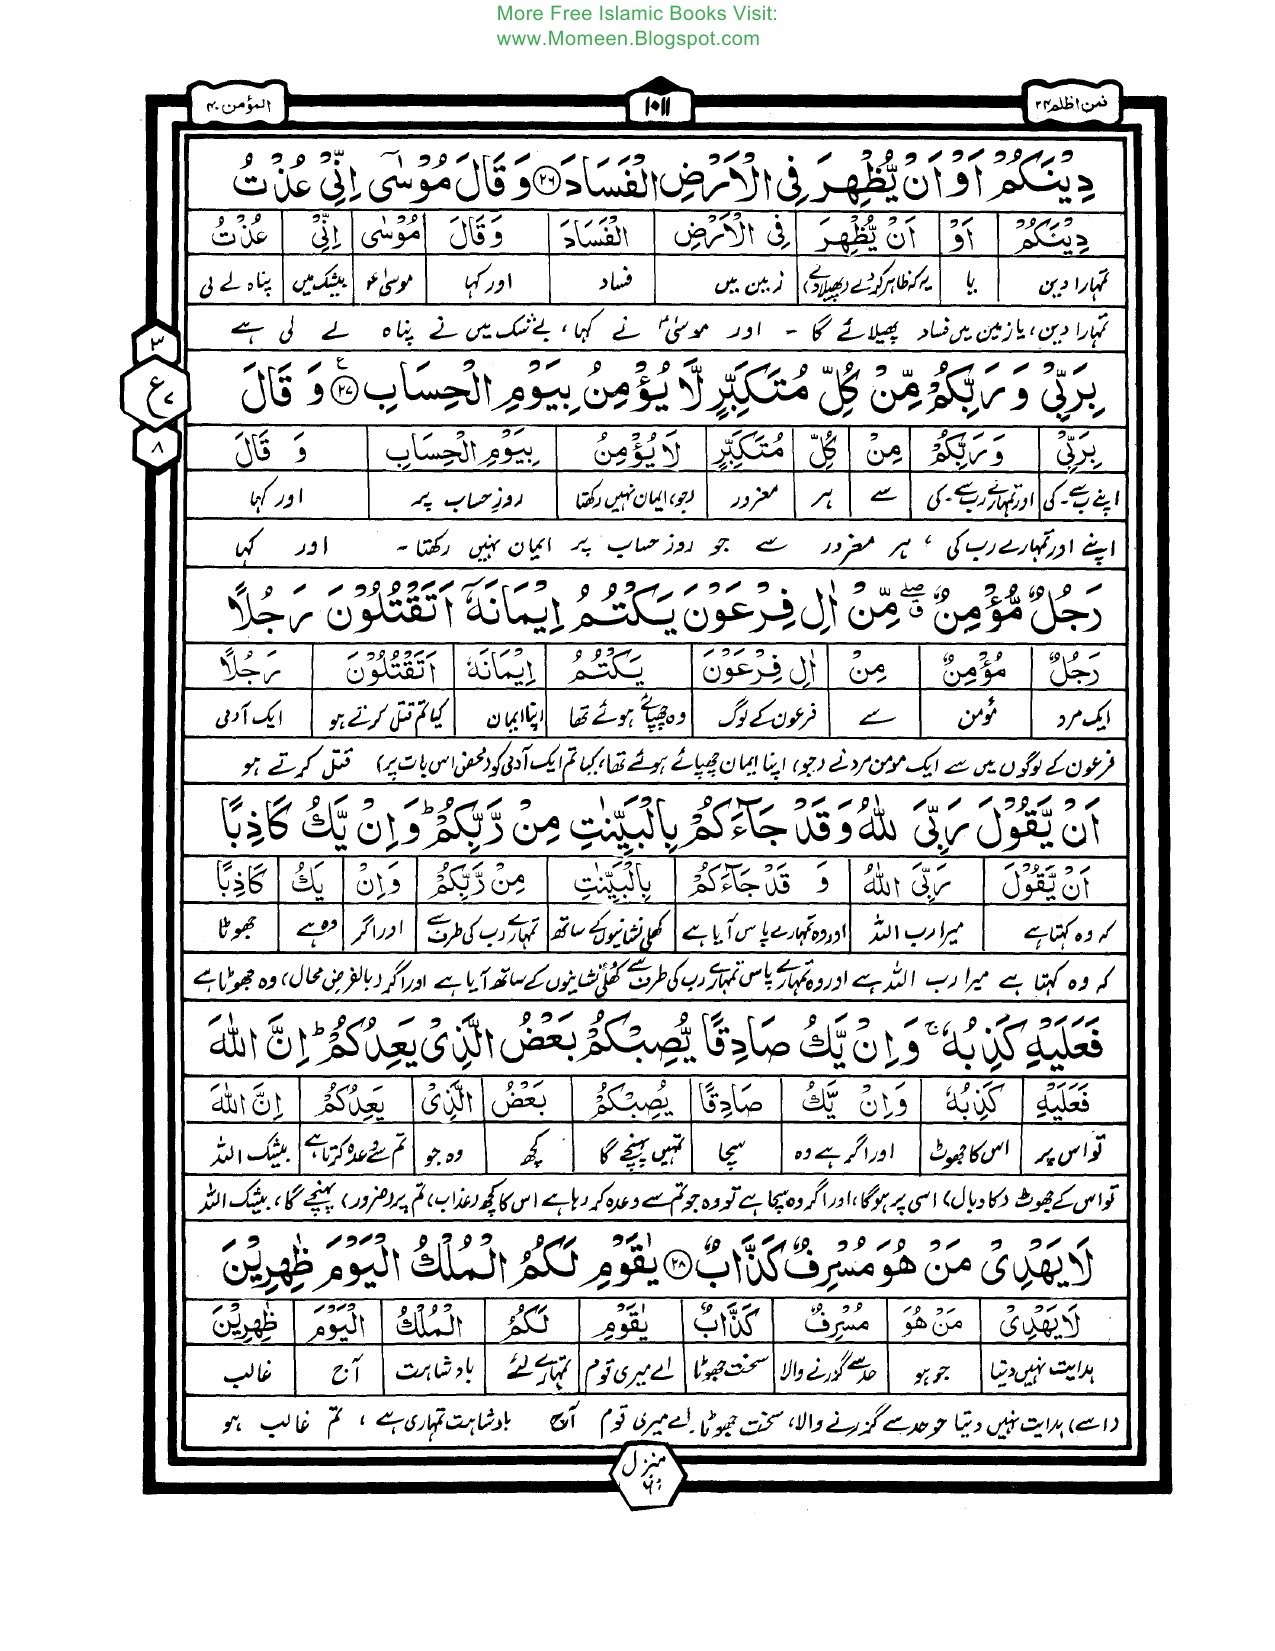 More Free Islamic Books Visit:
www.Momeen.Blogspot.com
المؤمن ۴۰
۱۰۱۱
فمن اظلم ۲۴
دِيْنَكُمْ اَوْ اَنْ يُّظْهِرَ فِي الْاَرْضِ الْفَسَادَ ۲۶ وَقَالَ مُوْسٰٓى اِنِّىْ عُذْتُ
دِيْنَكُمْ اَوْ اَنْ يُّظْهِرَ فِي الْاَرْضِ الْفَسَادَ وَقَالَ مُوْسٰٓى اِنِّىْ عُذْتُ
تمہارا دین یا یہ کہ ظاہر کردے (پھیلا دے) زمین میں فساد اور کہا موسیٰؑ بیشک میں پناہ لے لی
تمہارا دین، یا زمین میں فساد پھیلائے گا - اور موسیٰؑ نے کہا، بے شک میں نے پناہ لے لی ہے
۳
ع ۷
۸
بِرَبِّىْ وَرَبِّكُمْ مِّنْ كُلِّ مُتَكَبِّرٍ لَّا يُؤْمِنُ بِيَوْمِ الْحِسَابِ ۲۷ ع وَقَالَ
بِرَبِّىْ وَرَبِّكُمْ مِنْ كُلِّ مُتَكَبِّرٍ لَا يُؤْمِنُ بِيَوْمِ الْحِسَابِ وَقَالَ
اپنے رب سے - کی اور تمہارے رب سے - کی سے ہر مغرور (جو) ایمان نہیں رکھتا روزِ حساب پر اور کہا
اپنے اور تمہارے رب کی، ہر مغرور سے جو روز حساب پر ایمان نہیں رکھتا - اور کہا
رَجُلٌ مُّؤْمِنٌ ۖ مِّنْ اٰلِ فِرْعَوْنَ يَكْتُمُ اِيْمَانَهٗٓ اَتَقْتُلُوْنَ رَجُلًا
رَجُلٌ مُؤْمِنٌ مِنْ اٰلِ فِرْعَوْنَ يَكْتُمُ اِيْمَانَهٗٓ اَتَقْتُلُوْنَ رَجُلًا
ایک مرد مؤمن سے فرعون کے لوگ وہ چھپائے ہوئے تھا اپنا ایمان کیا تم قتل کرتے ہو ایک آدمی
فرعون کے لوگوں میں سے ایک مومن مرد نے (جو) اپنا ایمان چھپائے ہوئے تھا، کیا تم ایک آدمی کو (محض اس بات پر) قتل کرتے ہو
اَنْ يَّقُوْلَ رَبِّىَ اللّٰهُ وَقَدْ جَآءَكُمْ بِالْبَيِّنٰتِ مِنْ رَّبِّكُمْ ؕ وَاِنْ يَّكُ كَاذِبًا
اَنْ يَّقُوْلَ رَبِّىَ اللّٰهُ وَ قَدْ جَآءَكُمْ بِالْبَيِّنٰتِ مِنْ رَّبِّكُمْ وَاِنْ يَكُ كَاذِبًا
کہ وہ کہتا ہے میرا رب اللہ اور وہ تمہارے پاس آیا ہے کھلی نشانیوں کے ساتھ تمہارے رب کی طرف سے اور اگر وہ ہے جھوٹا
کہ وہ کہتا ہے میرا رب اللہ ہے اور وہ تمہارے پاس تمہارے رب کی طرف سے کھلی نشانیوں کے ساتھ آیا ہے اور اگر (بالفرض محال) وہ جھوٹا ہے
فَعَلَيْهِ كَذِبُهٗ ۚ وَاِنْ يَّكُ صَادِقًا يُّصِبْكُمْ بَعْضُ الَّذِىْ يَعِدُكُمْ ؕ اِنَّ اللّٰهَ
فَعَلَيْهِ كَذِبُهٗ وَاِنْ يَّكُ صَادِقًا يُّصِبْكُمْ بَعْضُ الَّذِىْ يَعِدُكُمْ اِنَّ اللّٰهَ
تو اس پر اس کا جھوٹ اور اگر ہے وہ سچا تمہیں پہنچے گا کچھ وہ جو تم سے وعدہ کرتا ہے بیشک اللہ
تو اس کے جھوٹ (کا وبال) اسی پر ہوگا، اور اگر وہ سچا ہے تو وہ جو تم سے وعدہ کر رہا ہے اس کا کچھ (عذاب) تم پر (ضرور) پہنچے گا، بیشک اللہ
لَا يَهْدِىْ مَنْ هُوَ مُسْرِفٌ كَذَّابٌ ۲۸ يٰقَوْمِ لَكُمُ الْمُلْكُ الْيَوْمَ ظٰهِرِيْنَ
لَا يَهْدِىْ مَنْ هُوَ مُسْرِفٌ كَذَّابٌ يٰقَوْمِ لَكُمُ الْمُلْكُ الْيَوْمَ ظٰهِرِيْنَ
ہدایت نہیں دیتا جو ہو حد سے گزرنے والا سخت جھوٹا اے میری قوم تمہارے لئے بادشاہت آج غالب
(اسے) ہدایت نہیں دیتا جو حد سے گزرنے والا، سخت جھوٹا۔ اے میری قوم آج بادشاہت تمہاری ہے، تم غالب ہو
منزل ۶